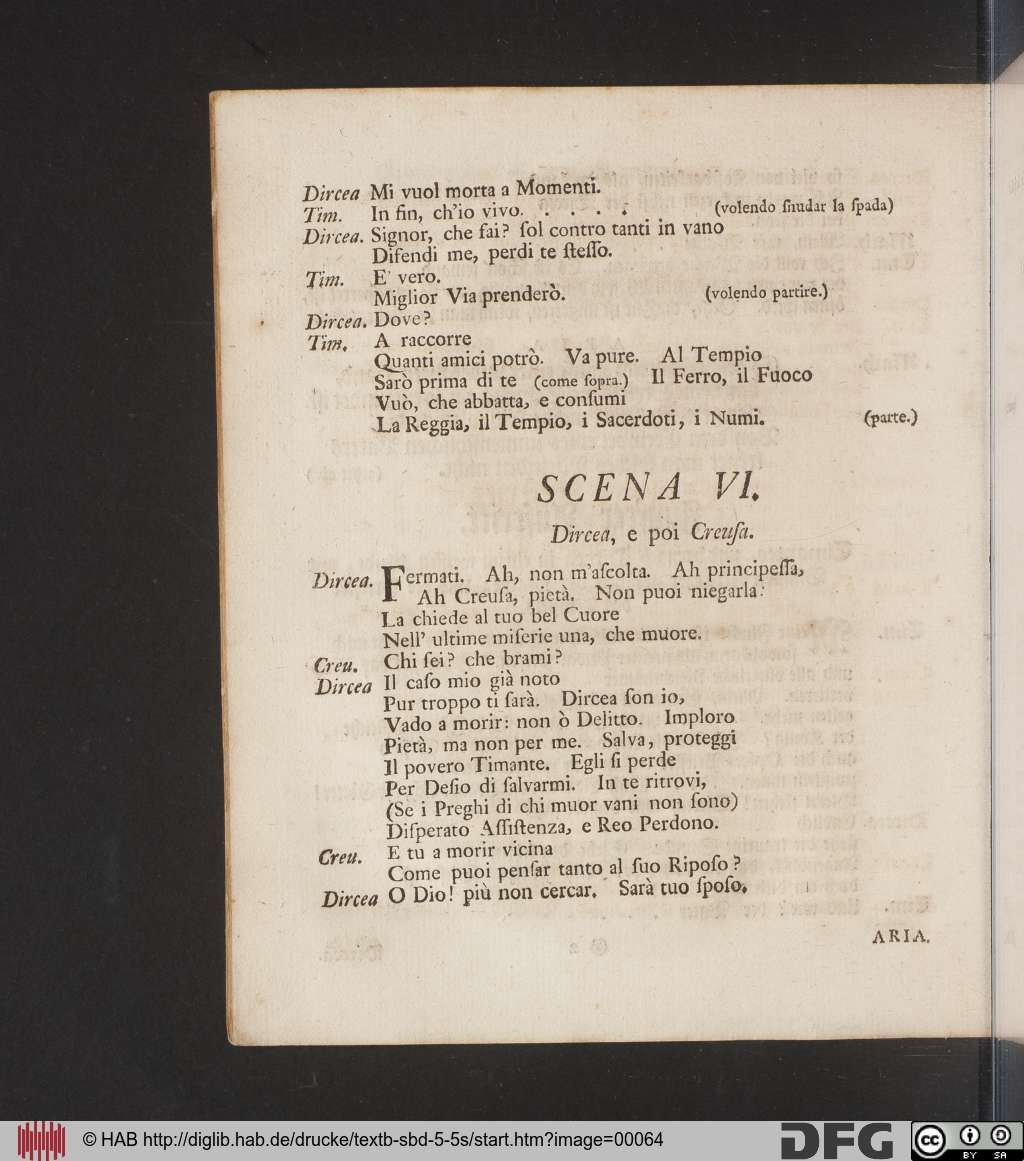 Dircea Mi vuol morta a Momenti.
Tim. In fin, ch'io vivo. . . . . . . (volendo ſnudar la ſpada)
Dircea. Signor, che fai? ſol contro tanti in vano
Difendi me, perdi te ſteſſo.
Tim. E' vero.
Miglior Via prenderò. (volendo partire.)
Dircea. Dove?
Tim. A raccorre
Quanti amici potrò. Va pure. Al Tempio
Sarò prima di te (come ſopra.) Il Ferro, il Fuoco
Vuò, che abbatta, e conſumi
La Reggia, il Tempio, i Sacerdoti, i Numi. (parte.)
SCENA VI.
Dircea, e poi Creuſa.
Dircea. Fermati. Ah, non m'aſcolta. Ah principeſſa,
Ah Creuſa, pietà. Non puoi niegarla:
La chiede al tuo bel Cuore
Nell' ultime miſerie una, che muore.
Creu. Chi ſei? che brami?
Dircea Il caſo mio già noto
Pur troppo ti ſarà. Dircea ſon io,
Vado a morir: non ò Delitto. Imploro
Pietà, ma non per me. Salva, proteggi
Il povero Timante. Egli ſi perde
Per Deſio di ſalvarmi. In te ritrovi,
(Se i Preghi di chi muor vani non ſono)
Diſperato Aſſiſtenza, e Reo Perdono.
Creu. E tu a morir vicina
Come puoi penſar tanto al ſuo Ripoſo?
Dircea O Dio! più non cercar. Sarà tuo ſpoſo.
ARIA.
© HAB http://diglib.hab.de/drucke/textb-sbd-5-5s/start.htm?image=00064
DFG
cc BY SA